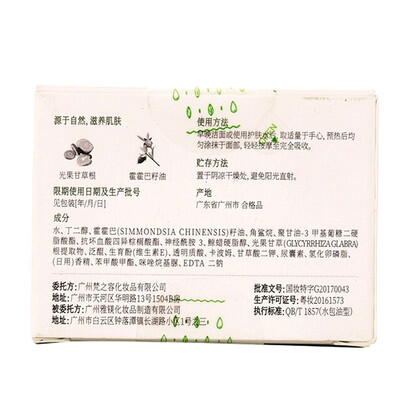 源于自然，滋养肌肤
光果甘草根
霍霍巴籽油
使用方法
早晚洁面或使用护肤水后，取适量于手心，预热后均
匀涂抹于面部，轻轻按摩至完全吸收。
贮存方法
置于阴凉干燥处，避免阳光直射。
限期使用日期及生产批号
见包装[年/月/日]
产地
广东省广州市 合格品
成分
水、丁二醇、霍霍巴(SIMMONDSIA CHINENSIS)籽油、角鲨烷、聚甘油-3 甲基葡糖二硬
脂酸酯、抗坏血酸四异棕榈酸酯、神经酰胺 3、鲸蜡硬脂醇、光果甘草(GLYCYRRHIZA GLABRA)
根提取物、泛醇、生育酚(维生素E)、透明质酸、卡波姆、甘草酸二钾、尿囊素、氢化卵磷脂、
(日用)香精、苯甲酸甲酯、咪唑烷基脲、EDTA 二钠
委托方：广州梵之容化妆品有限公司
广州市天河区华明路13号1504B房
被委托方：广州雅镁化妆品制造有限公司
广州市白云区钟落潭镇长湖路小区1号之三
批准文号：国妆特字G20170043
生产许可证号：粤妆20161573
执行标准：QB/T 1857(水包油型)